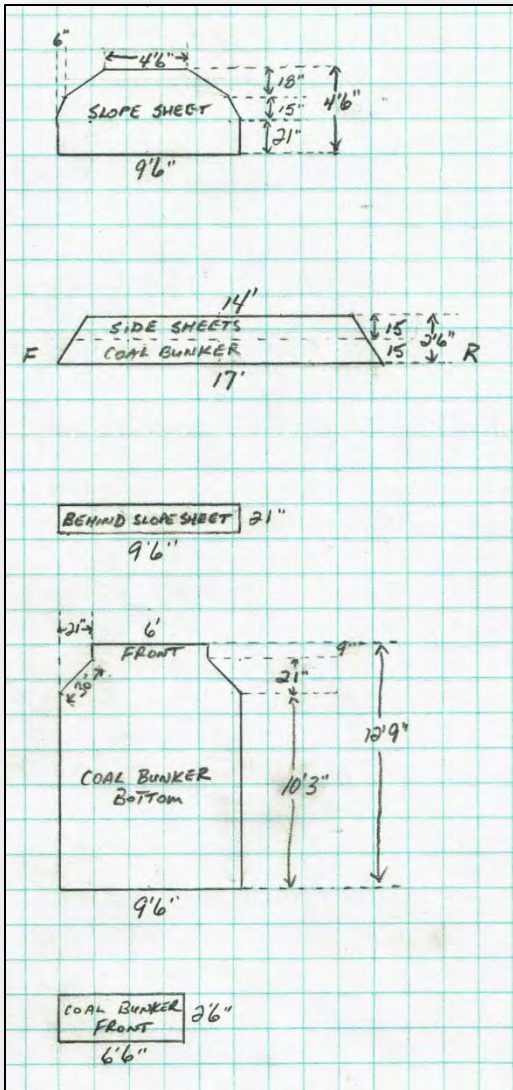 6"
4'6"
18"
4'6"
SLOPE SHEET
15"
21"
9'6"
14'
SIDE SHEETS
15
2'6"
F
COAL BUNKER
15
R
17'
BEHIND SLOPE SHEET
21"
9'6"
21"
6'
FRONT
9"
21"
12'9"
COAL BUNKER
BOTTOM
10'3"
9'6"
COAL BUNKER
FRONT
2'6"
6'6"